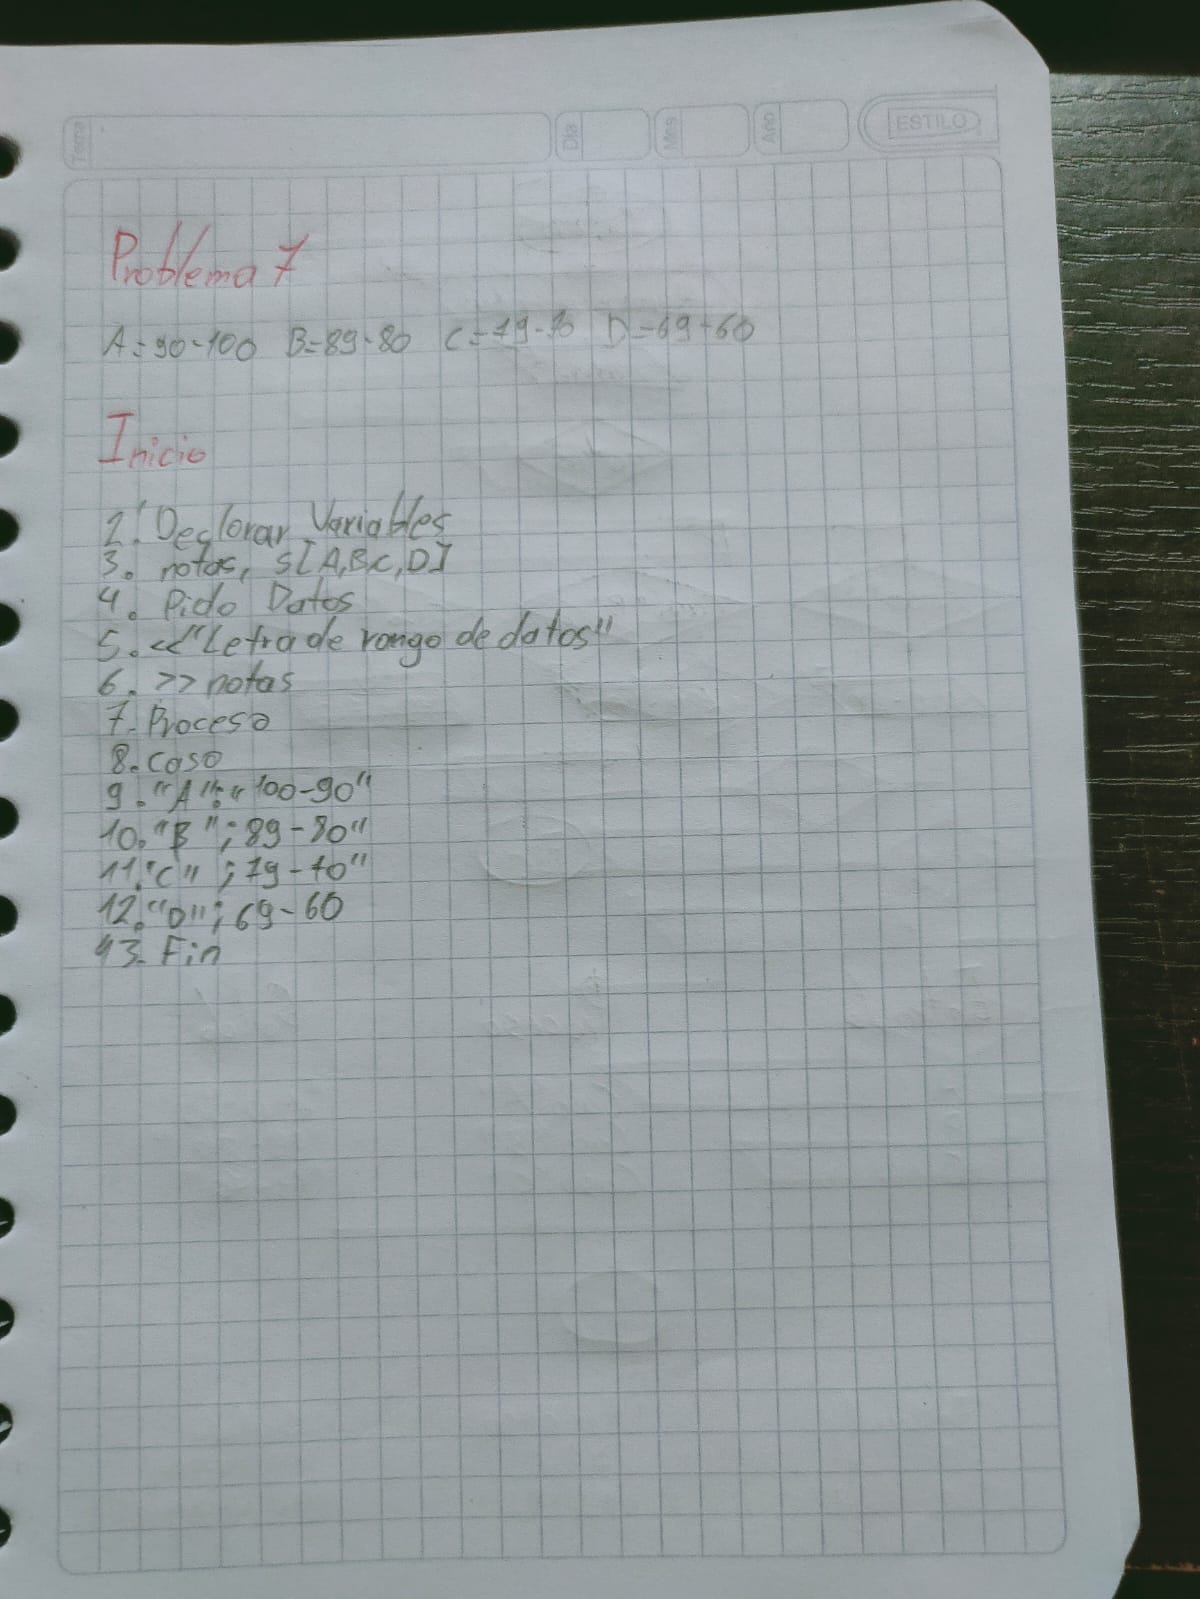 Tema Dia Mes Año ESTILO
Problema 7
A=90-100 B=89-80 C=79-70 D=69-60
Inicio
2. Declarar Variables
3. notas, S[A,B,C,D]
4. Pido Datos
5. <<"Letra de rango de datos"
6. >> notas
7. Proceso
8. Caso
9. "A": "100-90"
10. "B"; 89-80"
11. "C" ; 79-70"
12. "D"; 69-60
13. Fin